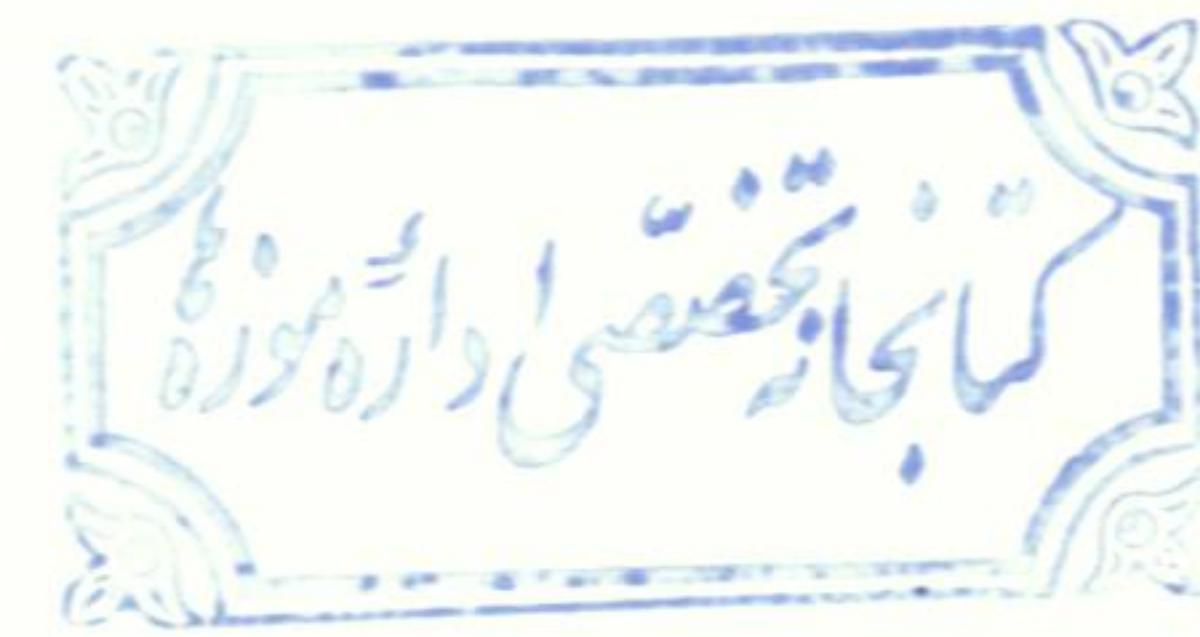 کتابخانه تخصّصی ادارهٔ موزه ها